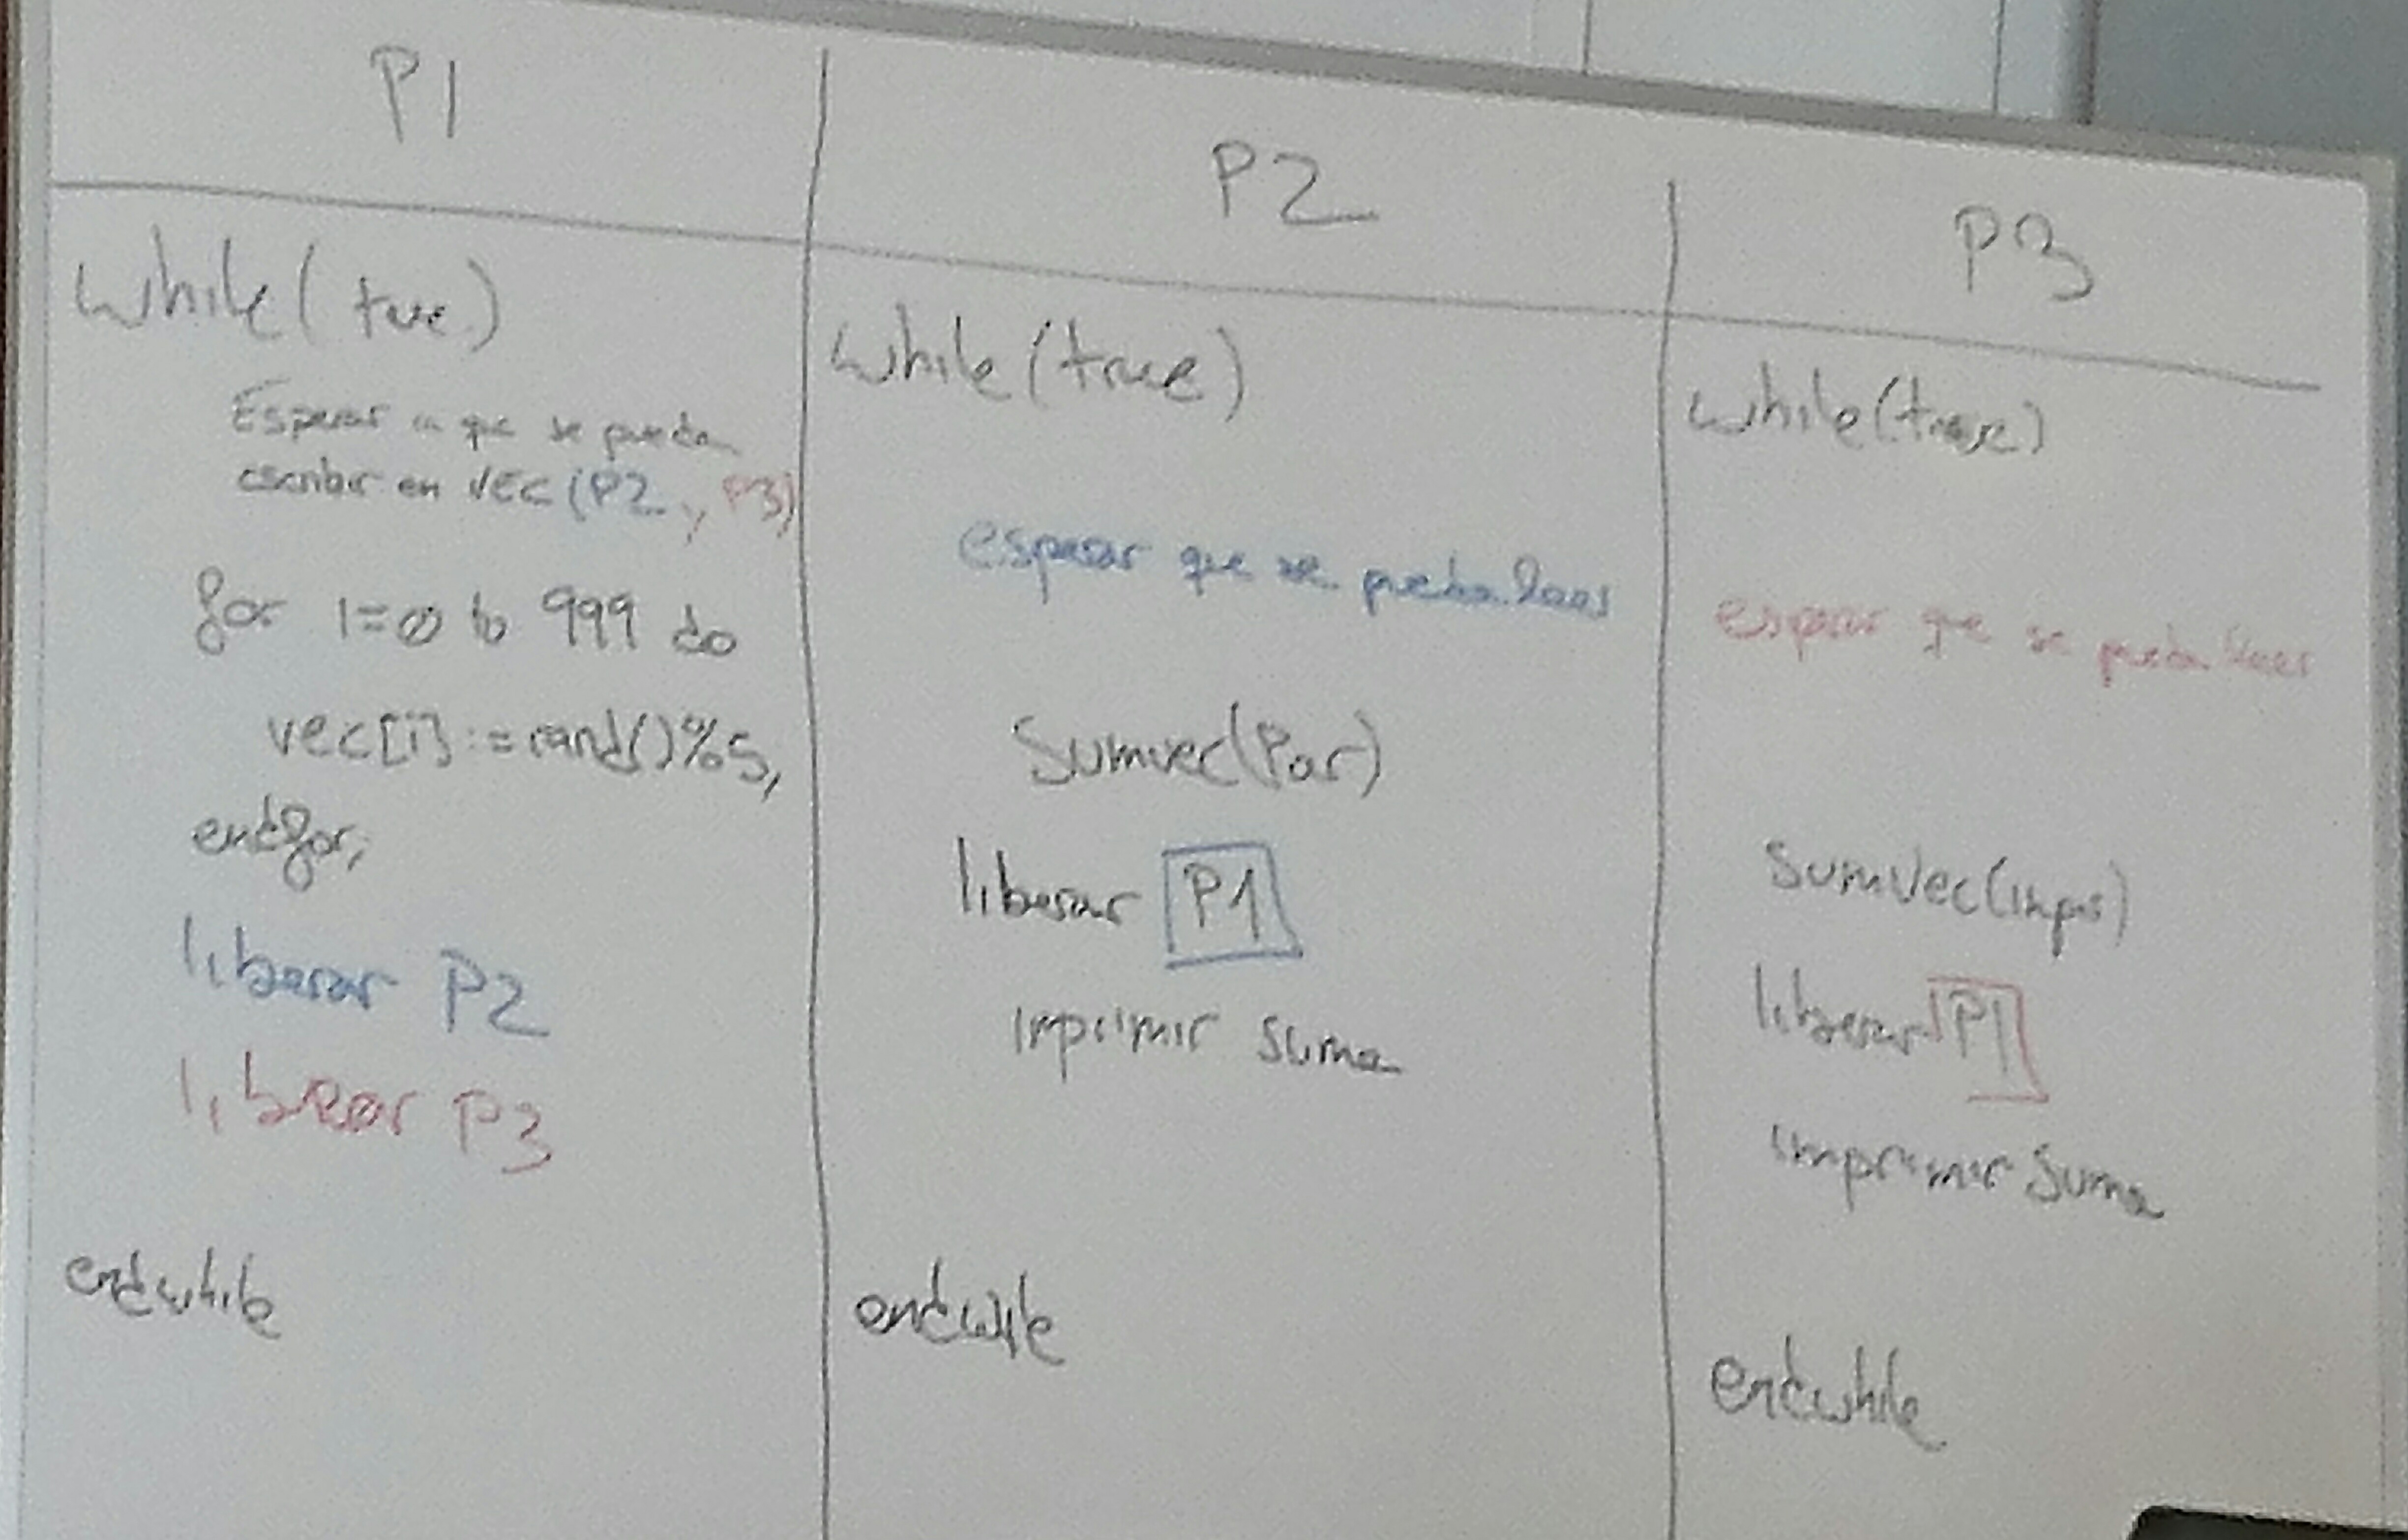 P1
while(true)
Esperar a que se pueda
escribir en VEC (P2 y P3)
for i=0 to 999 do
vec[i]:=rand()%5,
endfor;
liberar P2
liberar P3
endwhile
P2
while(true)
esperar que se pueda leer
Sumvec(Par)
liberar P1
imprimir suma
endwile
P3
while(true)
esperar que se pueda leer
SumVec(impar)
liberar P1
imprimir Suma
endwhile